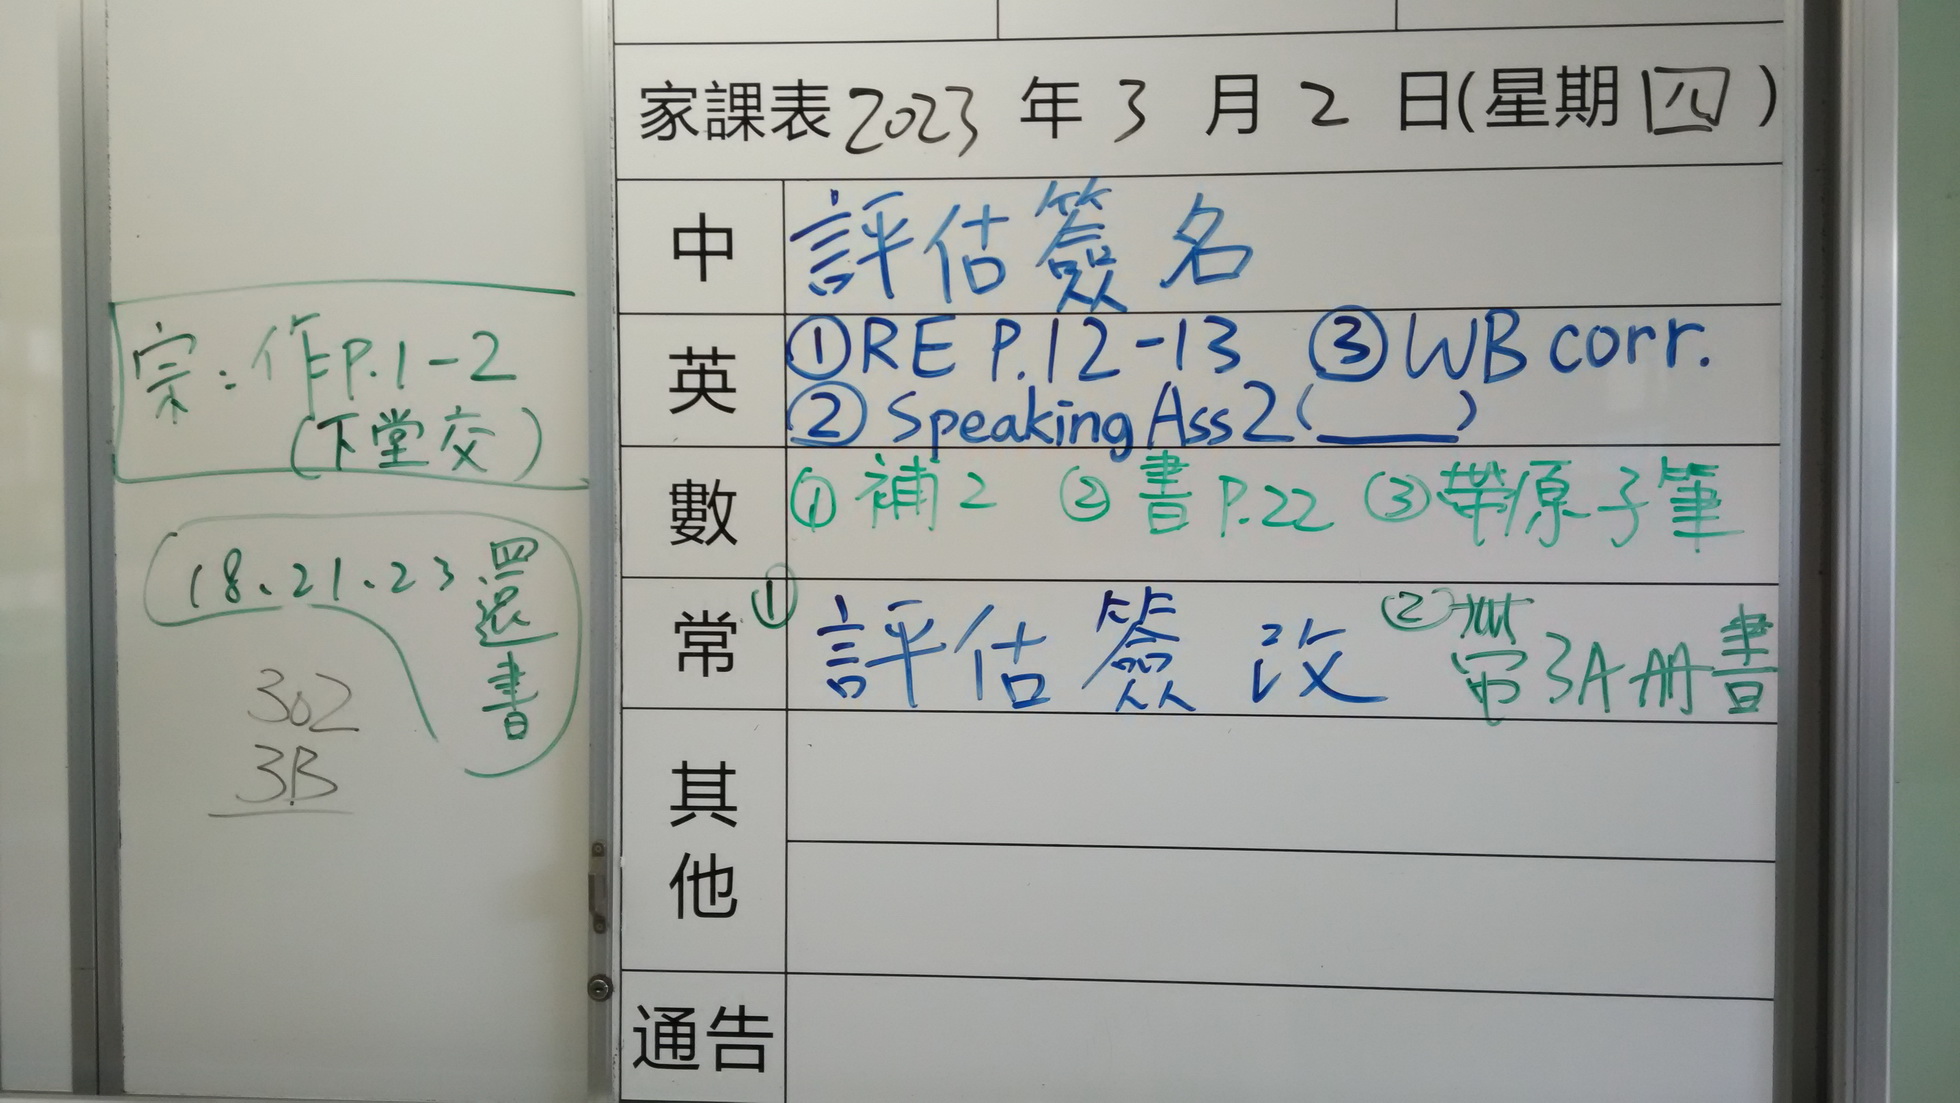 宗：作P.1-2
(下堂交)
18、21、23 還書
302
3B
家課表 2023 年 3 月 2 日(星期 四 )
中 評估簽名
英 ①RE P.12-13 ③WB corr.
② Speaking Ass2(____)
數 ① 補2 ② 書P.22 ③帶原子筆
常 ① 評估簽改 ②帶3A冊書
其他
通告